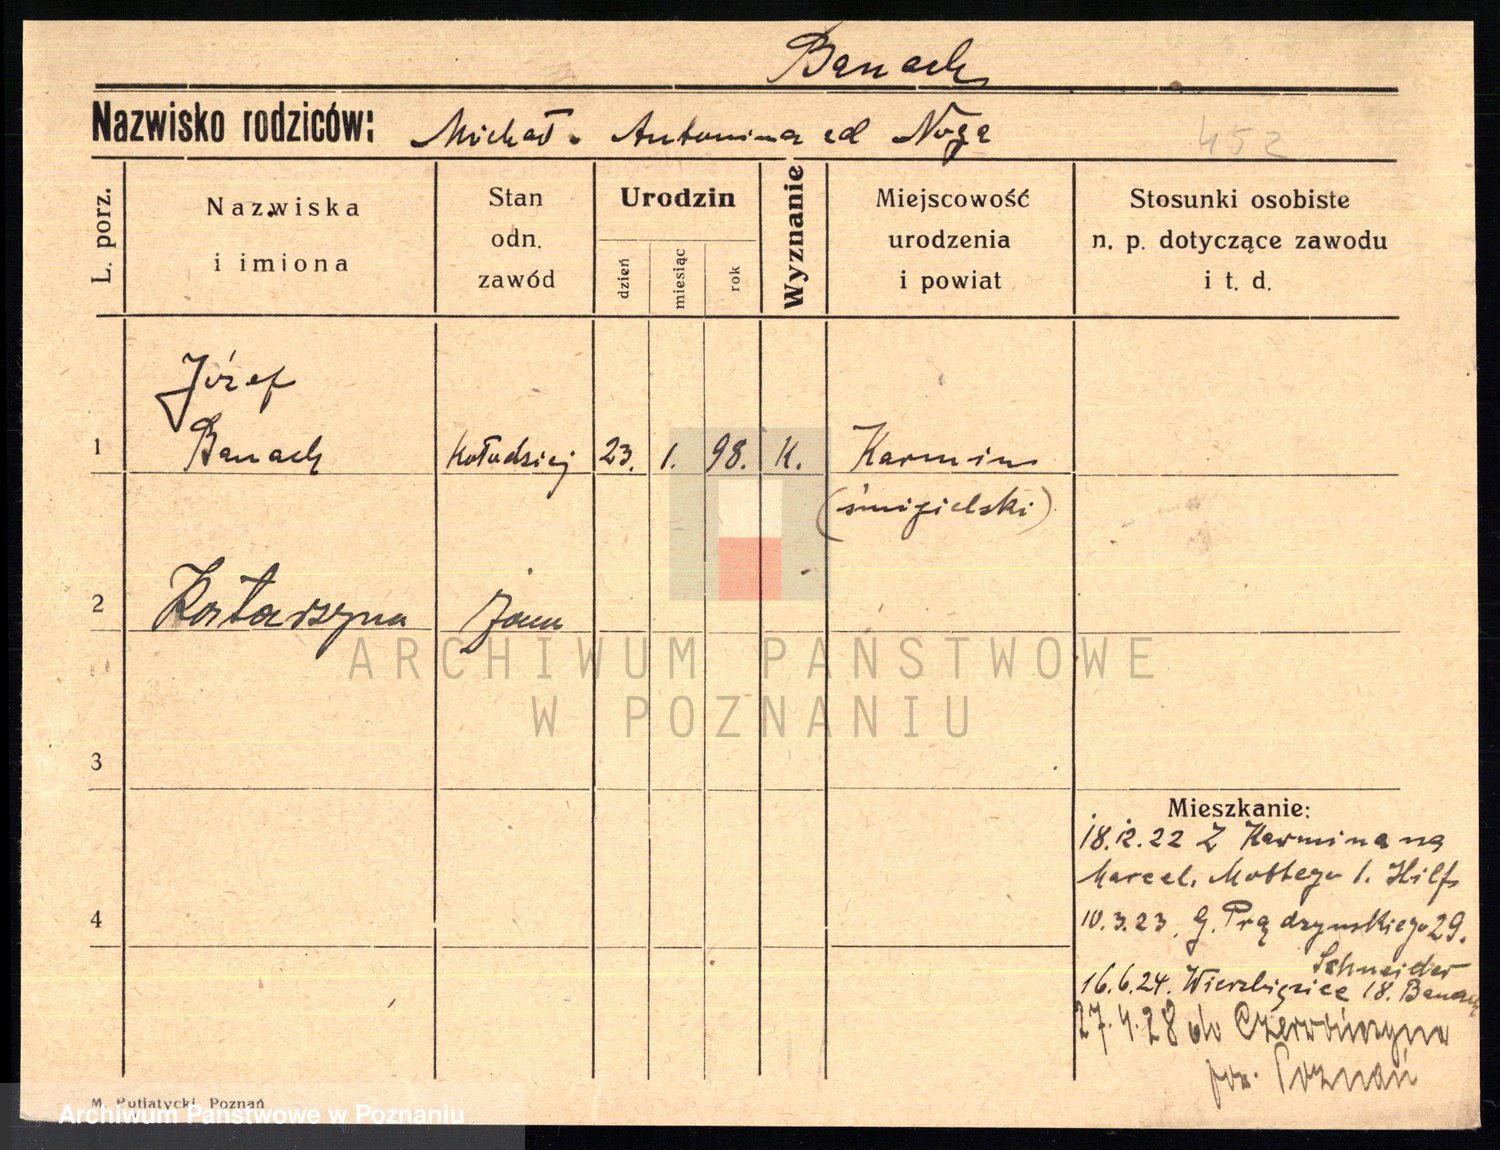 Banach
Nazwisko rodziców: Michał. Antonina zd Noga
452
L. porz.
Nazwiska
i imiona
Stan
odn.
zawód
Urodzin
dzień
miesiąc
rok
Wyznanie
Miejscowość
urodzenia
i powiat
Stosunki osobiste
n. p. dotyczące zawodu
i t. d.
Józef
1 Banach kołodziej 23. 1. 98. K. Karmin
(śmigielski)
2 Katarzyna żona
ARCHIWUM PAŃSTWOWE
W POZNANIU
3
Mieszkanie:
18.12.22 Z Karmina na
Marcel. Mottego 1. Hilf
4 10.3.23. G. Prądzynskiego 29.
Schneider
16.6.24. Wierzbięcice 18. Banach
27.4.28 do
pow. Poznań
M. Putiatycki, Poznań
Archiwum Państwowe w Poznaniu